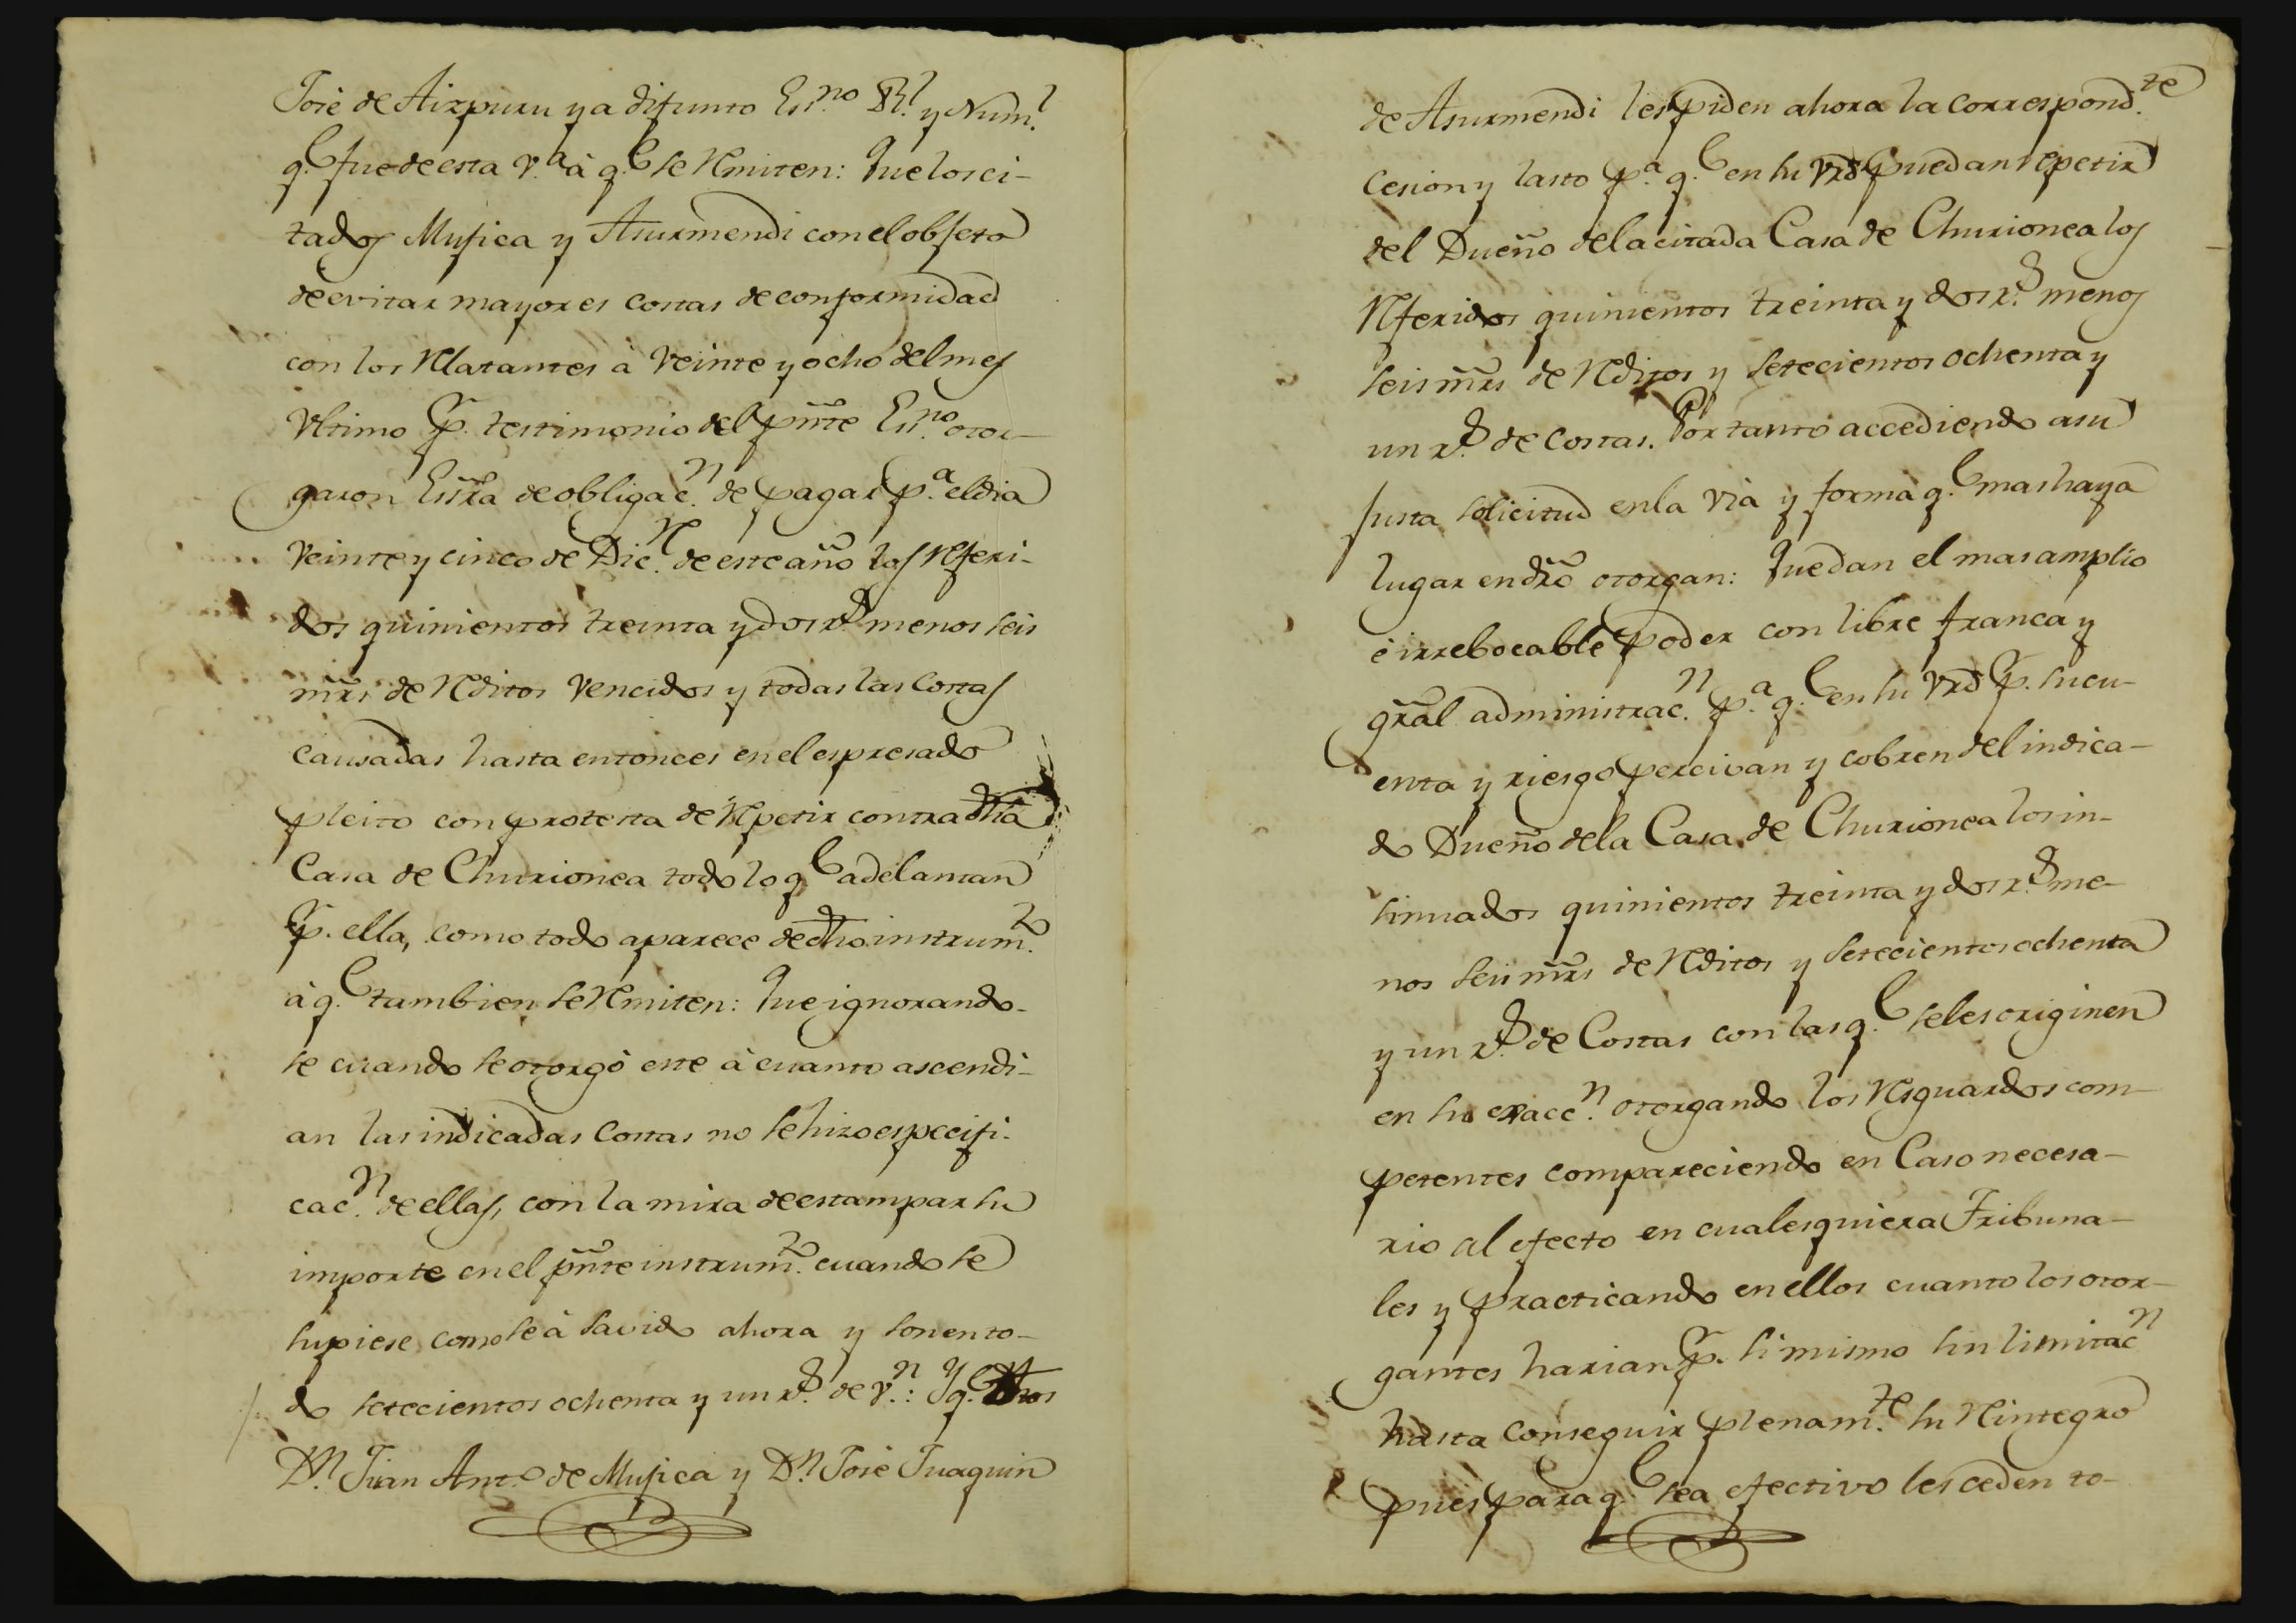 José de Aizpuru ya difunto Ess.no Rl. y Num.l
q.e fue de esta V.a à q.e se remiten: Que los ci-
tados Mujica y Asurmendi con el objeto
de evitar mayores costas de conformidad
con los relatantes à veinte y ocho del mes
ultimo p.r testimonio del pñte Ess.no otor-
garon Essra de obligac.n de pagar p.a el dia
veinte y cinco de Dic.re de este año los referi-
dos quinientos treinta y dos r.s menos seis
mrs de reditos vencidos y todas las costas
causadas hasta entonces en el espresado
pleito con protesta de repetir contra dha
Casa de Churionea todo lo q.e adelantan
p.r ella, como todo aparece de dho instrum.to
à q.e tambien se remiten: Que ignorando-
se cuando se otorgó este à cuanto ascendi-
an las indicadas Costas no se hizo especifi-
cac.n de ellas, con la mira de estampar su
importe en el pñte instrum.to cuando se
supiese como se à savido ahora y son en to-
do setecientos ochenta y un r.s de v.n: Y q.e dhos
D.n Juan Ant.o de Mujica y D.n José Juaquin
de Asurmendi les piden ahora la correspond.te
cesion y lasto p.a q.e en su vrd puedan repetir
del Dueño de la citada Casa de Churionea los
referidos quinientos treinta y dos r.s menos
seis mrs de reditos y setecientos ochenta y
un r.s de costas. Por tanto accediendo a su
justa solicitud en la via y forma q.e mas haya
lugar en dro otorgan: Que dan el mas amplio
è irrebocable poder con libre franca y
gral administrac.n p.a q.e en su vrd p.r su cu-
enta y riesgo percivan y cobren del indica-
do Dueño de la Casa de Churionea los in-
sinuados quinientos treinta y dos r.s me-
nos seis mrs de reditos y setecientos ochenta
y un r.s de Costas con las q.e se les originen
en su exacc.n otorgando los resguardos com-
petentes compareciendo en Caso necesa-
rio al efecto en cualesquiera Tribuna-
les y practicando en ellos cuanto los otor-
gantes harian p.r si mismo sin limitac.n
hasta conseguir plenam.te su reintegro
pues para q.e sea efectivo les ceden to-